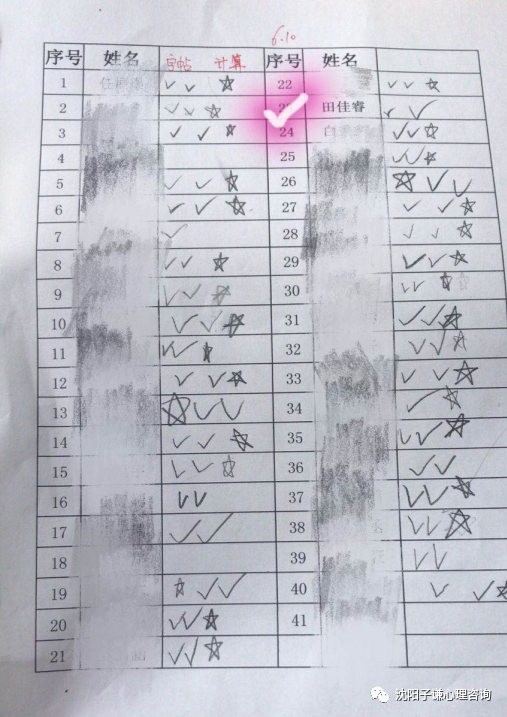 6.10
序号 姓名 字帖 计算 序号 姓名
1 22
2 田佳睿
3 24
4 25
5 26
6 27
7 28
8 29
9 30
10 31
11 32
12 33
13 34
14 35
15 36
16 37
17 38
18 39
19 40
20 41
21
沈阳子谦心理咨询